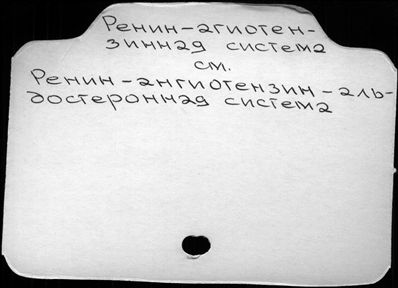 Ренин-агиотен-
зинная система
см.
Ренин-ангиотензин-аль-
достеронная система